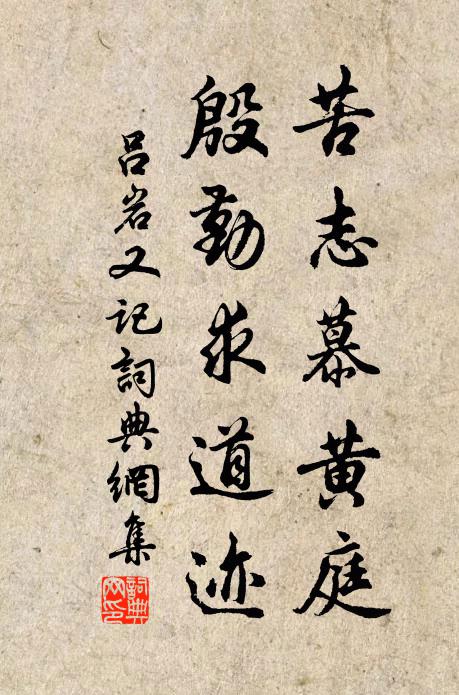 苦志慕黄庭
殷勤求道迹
吕岩又记词典網集
詞典網印